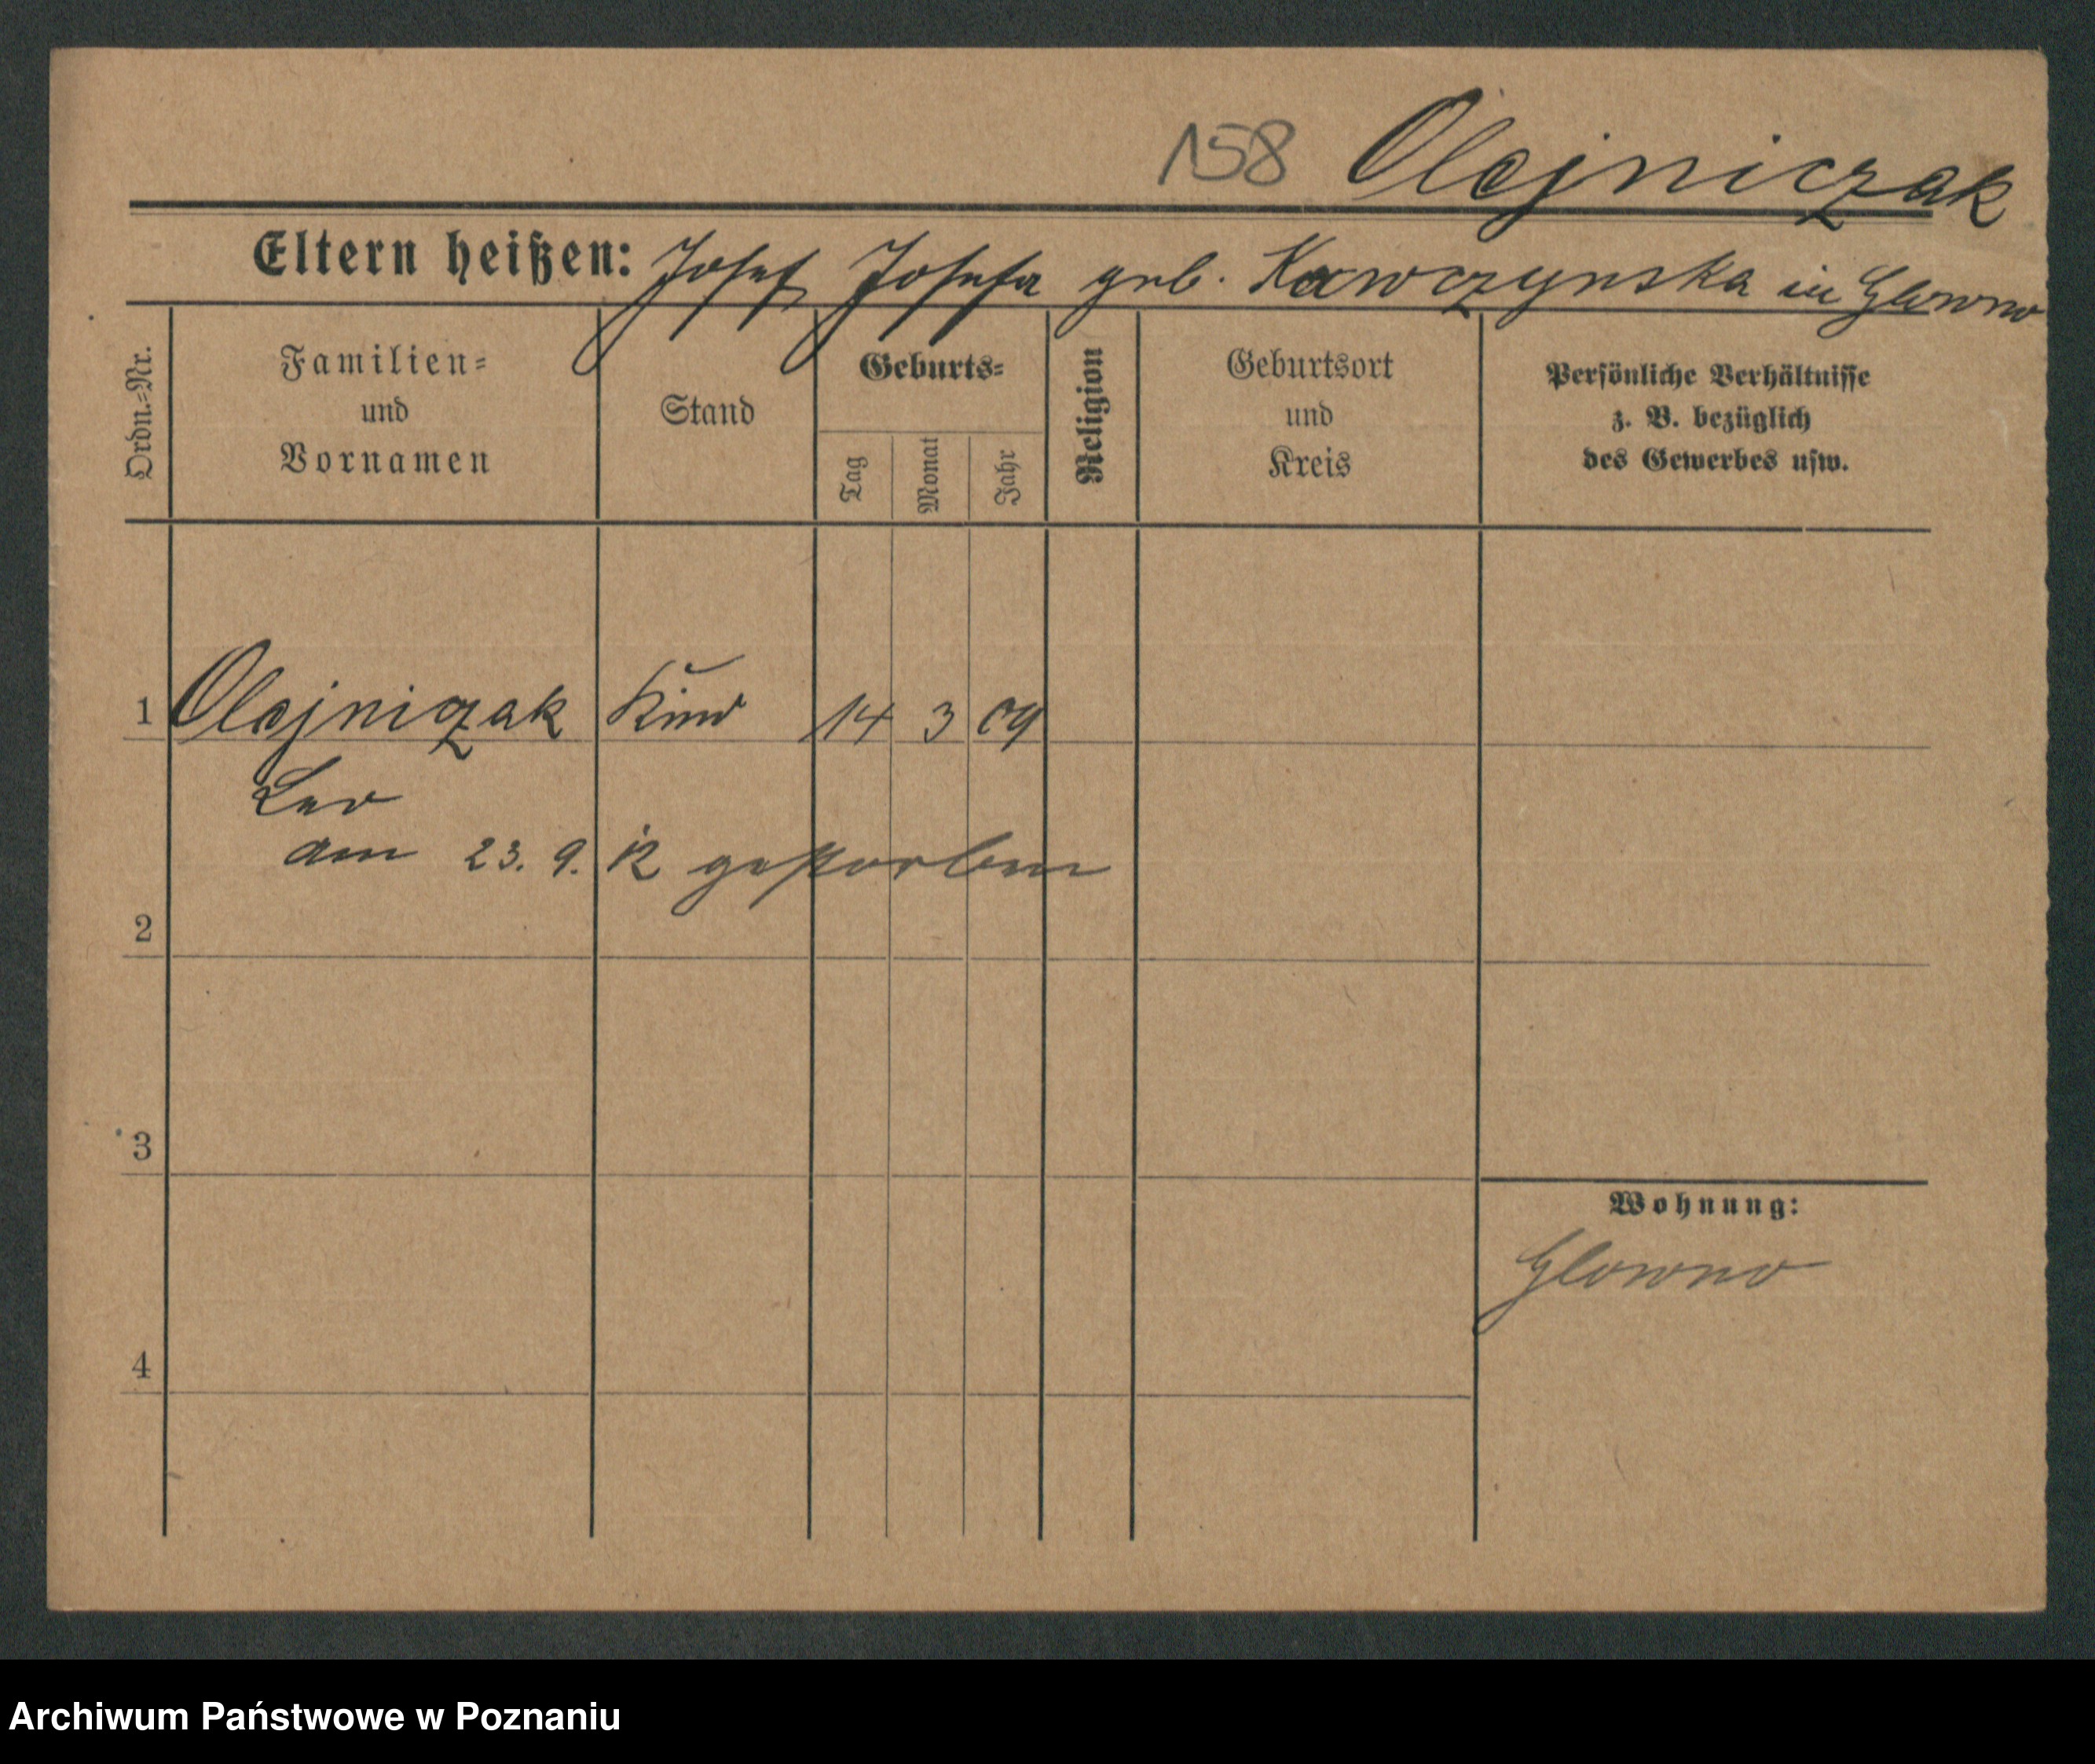 158 Olejniczak
Eltern heißen: Josef Josefa geb. Kawczynska in Glowno
Ordn.-Nr.
Familien-
und
Vornamen
Stand
Geburts-
Tag
Monat
Jahr
Religion
Geburtsort
und
Kreis
Persönliche Verhältnisse
z. B. bezüglich
des Gewerbes usw.
1 Olejniczak Kind 14 3 09
Leo
am 23. 9. 12 gestorben
2
3
Wohnung:
Glowno
4
Archiwum Państwowe w Poznaniu